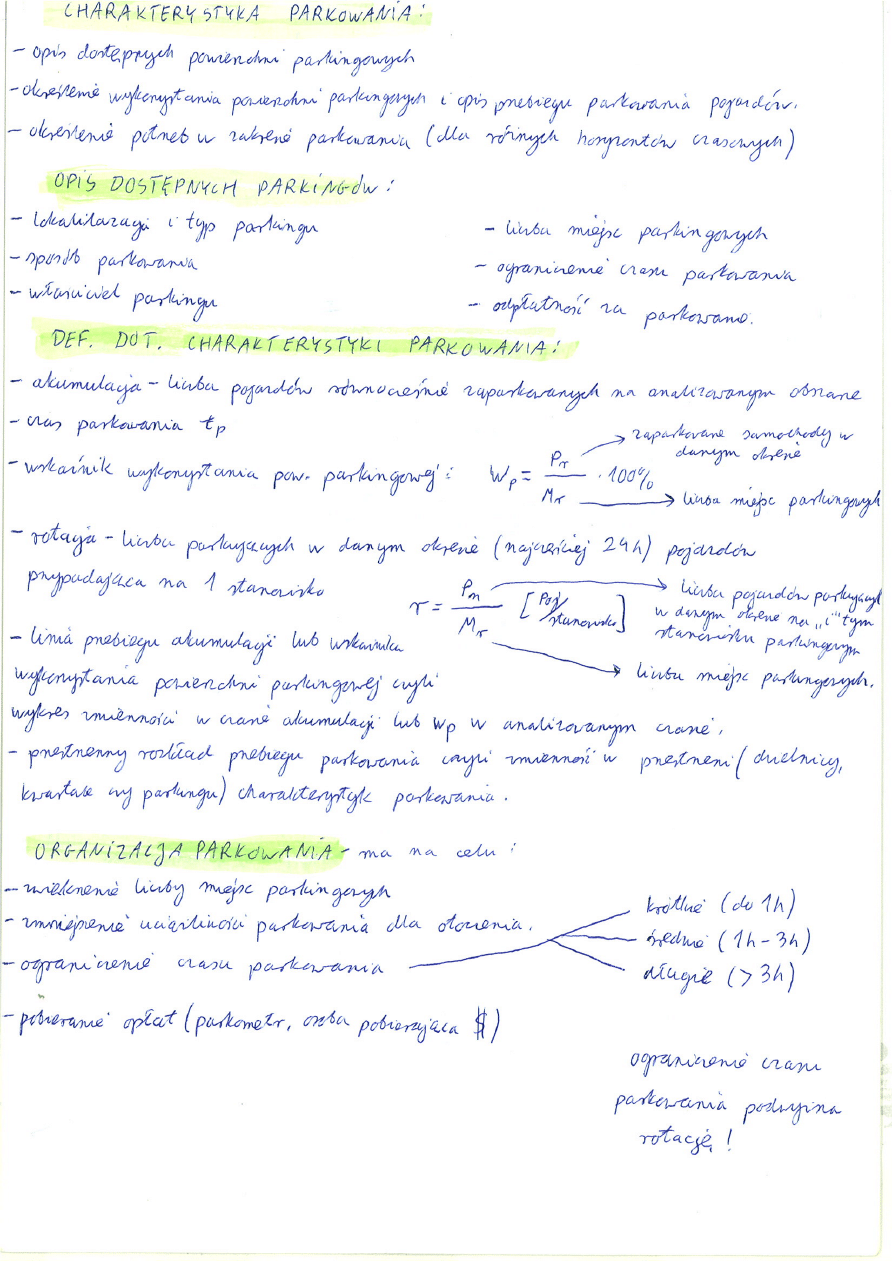 CHARAKTERYSTYKA PARKOWANIA:
- opis dostępnych powierzchni parkingowych
- określenie wykorzystania powierzchni parkingowych i opis przebiegu parkowania pojazdów.
- określenie potrzeb w zakresie parkowania (dla różnych horyzontów czasowych)
OPIS DOSTĘPNYCH PARKINGÓW:
- lokalilazacji i typ parkingu
- sposób parkowania
- właściciel parkingu
- liczba miejsc parkingowych
- ograniczenie czasu parkowania
- odpłatność za parkowanie.
DEF. DOT. CHARAKTERYSTYKI PARKOWANIA:
- akumulacja - liczba pojazdów równocześnie zaparkowanych na analizowanym obszarze
- czas parkowania tp
- wskaźnik wykorzystania pow. parkingowej: Wp = Pr / Mr · 100%
zaparkowane samochody w
danym okresie
liczba miejsc parkingowych
- rotacja - liczba parkujących w danym okresie (najczęściej 24h) pojazdów
przypadająca na 1 stanowisko
r = Pn / Mr [Poj/stanowisko]
liczba pojazdów parkujących
w danym okresie na „i" tym
stanowisku parkingowym
liczba miejsc parkingowych.
- linia przebiegu akumulacji lub wskaźnika
wykorzystania powierzchni parkingowej czyli
wykres zmienności w czasie akumulacji lub Wp w analizowanym czasie.
- przestrzenny rozkład przebiegu parkowania czyli zmienność w przestrzeni (dzielnicy,
kwartale czy parkingu) charakterystyk parkowania.
ORGANIZACJA PARKOWANIA - ma na celu:
- zwiększenie liczby miejsc parkingowych
- zmniejszenie uciążliwości parkowania dla otoczenia.
- ograniczenie czasu parkowania
krótkie (do 1h)
średnie (1h - 3h)
długie (> 3h)
- pobieranie opłat (parkometr, osoba pobierająca $)
ograniczenie czasu
parkowania podwyższa
rotację!